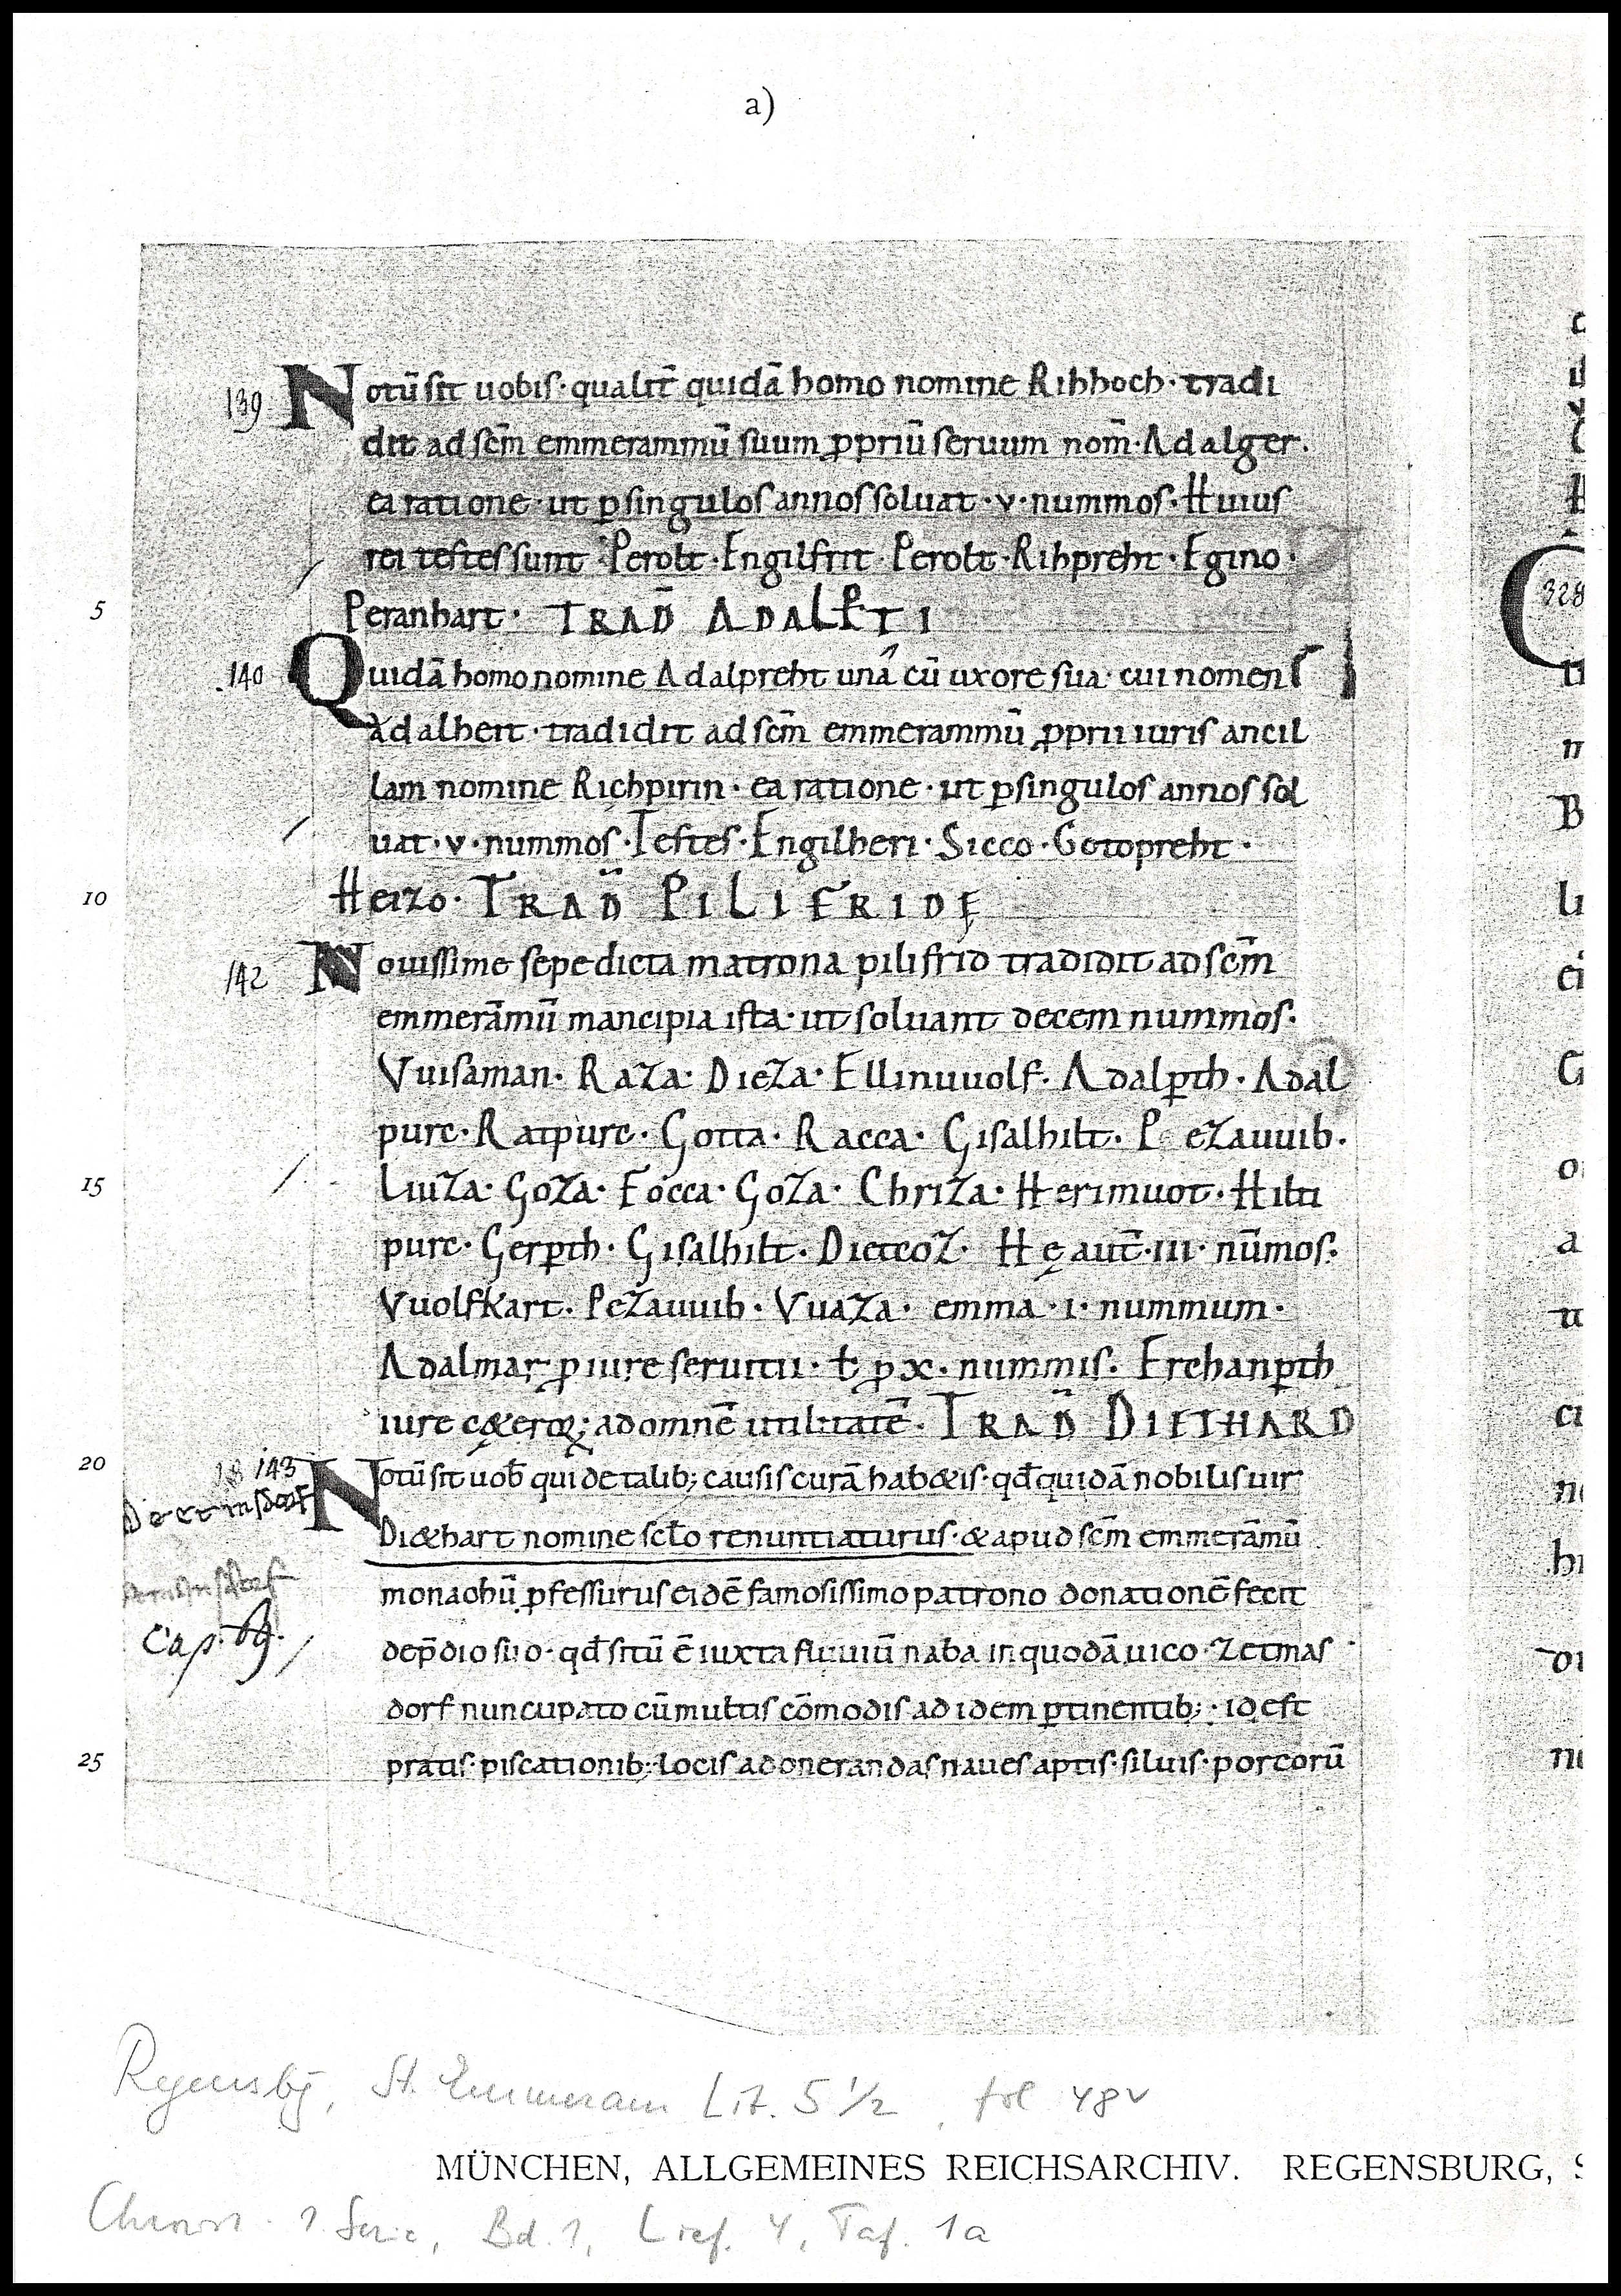 a)
139 Notū sit uobis · qualit̄ quidā homo nomine Rihhoch · tradi
dit ad sc̄m emmerammū suum ꝓpriū seruum nom̄ · Adalger ·
ea ratione · ut ꝑ singulos annos soluat · v · nummos · Huius
rei testes sunt · Perolt · Engilfrit · Perolt · Rihpreht · Egino ·
5 Peranhart · TRAD̄ ADALPꝐTI
140 Quidā homo nomine Adalpreht unā cū uxore sua · cui nomen ſ
Adalheit · tradidit ad sc̄m emmerammū ꝓprii iuris ancil
lam nomine Richpirin · ea ratione · ut ꝑ singulos annos sol
uat · v · nummos · Testes · Engilheri · Sicco · Gotopreht ·
10 Heizo · TRAD̄ PILIFRIDĘ
142 Nouissime sepe dicta matrona pilifrid tradidit ad sc̄m
emmerāmū mancipia ista · ut soluant decem nummos ·
Vuisaman · Raza · Dieza · Ellinuuolf · Adalꝑth · Adal
purc · Ratpurc · Gotta · Racca · Gisalhilt · P ezauuib ·
15 Liuza · Goza · Focca · Goza · Chriza · Herimuot · Hilti
purc · Gerꝑth · Gisalhilt · Dietcoz · Hę aut̄ · iii · nūmos ·
Vuolfkart · Pezauuib · Vuaza · emma · i · nummum ·
Adalmar ꝓ iure seruitii · ł ꝓ x · nummis · Erchanꝑth
iure cęterorꝫ; ad omnē utilitatē · TRAD̄ DIETHARD
20 143 Notū sit uob̄ qui de talib; causis curā hab&is · qd̄ quidā nobilis uir
Di&hart nomine sc̄lo renuntiaturus · & apud sc̄m emmerāmū
monachū ꝓfessurus eidē famosissimo patrono donationē fecit
Cap. 69.
de p̄dio suo · qd̄ sitū ē iuxta fluuiū naba in quodā uico · Zetmas
dorf nuncupato cū multis cōmodis ad idem ꝑtinentib; · id est
25 pratis · piscationib; · locis ad onerandas naues aptis · siluis · porcorū
328
Regensbg, St. Emmeram Lit. 5 1/2, fol 48v
MÜNCHEN, ALLGEMEINES REICHSARCHIV. REGENSBURG, S
Chroust 1. Serie, Bd. 1, Lief. 4, Taf. 1a